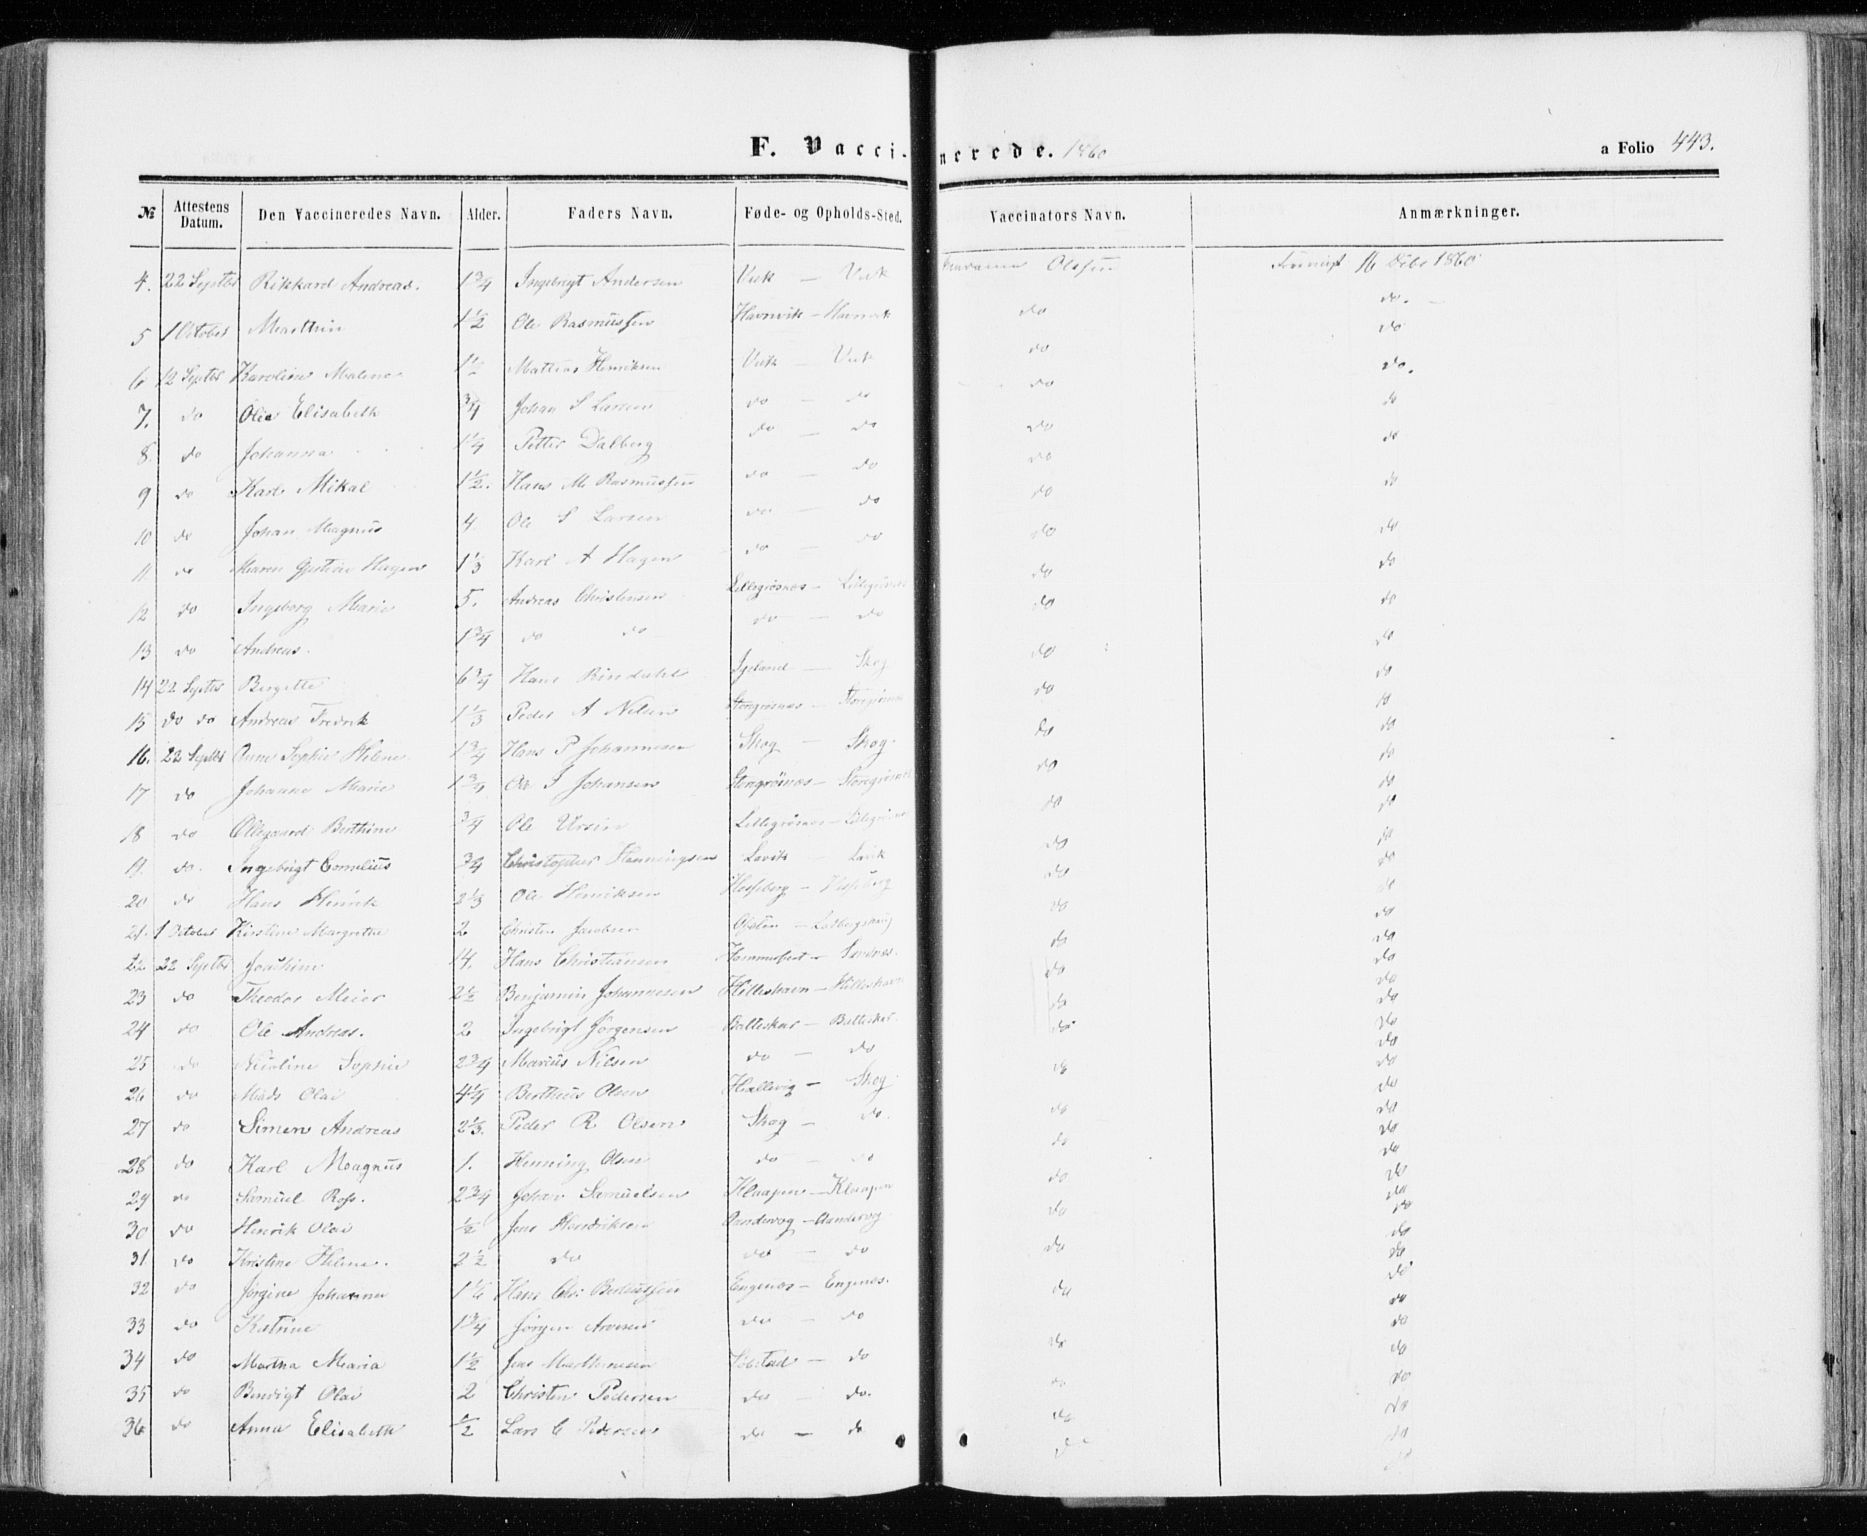 F. Vaccinerede. 1860
a Folio 443.
№ Attestens Datum. Den Vaccineredes Navn. Alder. Faders Navn. Føde- og Opholds-Sted. Vaccinators Navn. Anmærkninger.
4. 22 Septbr Rikkard Andreas. 1 3/4 Ingebrigt Andersen Viik — Viik Olsen 16 Debr 1860
5 1 October Marthin 1 1/2 Ole Rasmussen Havnvik — Havnvik do do.
6 12 Septbr Karoline Malene 1 1/2 Mathias Henriksen Viik — Viik do do
7. do Olia Elisabeth 3/4 Johan S Larsen do — do do do.
8. do Johanna 1 1/4 Petter Dalberg do — do do do
9 do Karl Mikal 1 1/2. Hans M Rasmussen do — do do do
10 do Johan Magnus 4. Ole S Larsen do — do do do
11. do Maren Hagen 1 1/3 Karl A Hagen do — do do do
12 do Ingeborg Marie 5. Andreas Christensen Lillegrøsnes — Lillegrøsnes do do
13 do Andreas. 1 3/4 do do do — do do do
14 22 Septbr Bergitte 6 3/4 Hans Rindahl Igeland — Skog do do
15 do do Andreas Fredrik 1 1/3 Peder A Nilsen Storegrøsnes — Storegrøsnes do do
16. 22 Septbr Anne Sophie Helene 1 3/4 Hans P Johannesen Skog — Skog. do do
17 do Johanne Marie 1 3/4 Ole S Johansen Storegrøsnes — Storegrøsnes do do
18 do Ollegaard Berthine 3/4 Ole Ursin Lillegrøsnes — Lillegrøsnes do do
19. do. Ingebrigt Cornelius 3/4 Christopher Henningsen Lavik — Lavik do do
20 do Hans Henrik 2 1/3 Ole Henriksen do do
21. 1 October Kirstine Margrethe 2 Christen Jacobsen do do
22 22 Septbr Joachim 14. Hans Christiansen Hammerfest — Sandnes. do do
23 do Theodor Meier 2 1/2 Benjamin Johannesen Hilleshavn — Hilleshavn do do
24 do Ole Andreas. 2 Ingebrigt Jørgensen Balteskar — Balteskar. do do
25 do Nicoline Sophie 2 3/4 Marius Nilsen do — do do do
26 do Mads Olai 4 1/4 Bertheus Olsen Hallvig — Skog. do do
27 do Simen Andreas 2 1/3. Peder R Olsen Skog — do. do do
28 do Karl Magnus 1. Henning Olsen do — do do do
29 do Samuel Ross. 2 3/4 Johan Samuelsen Klaapen — Klaapen do do
30 do Henrik Olai 1/2 Jens Hendriksen Aandervog — Aandervog do do
31 do Kristine Helene. 2 1/2 do do — do do do
32 do Jørgine Johanna 1 1/6 Hans Chr: Berteussen Engenæs — Engenæs. do do
33 do Katrine 1 3/4 Jørgen Arvesen do — do do do
34 do Martha Maria 1 1/2 Jens Marthinesen Søbstad — do do do
35 do Bendigt Olai 2 Christen Pedersen do — do. do do
36 do Anna Elisabeth 1/2 Lars C Pedersen do — do do do